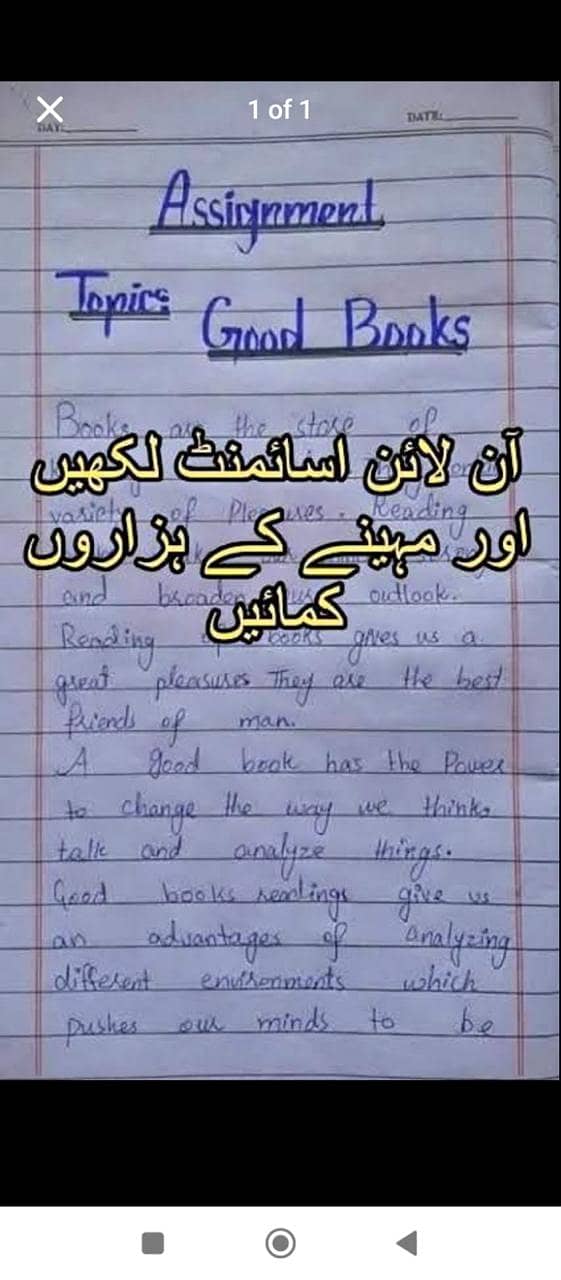 1 of 1
DAY:
DATE:
Assignment
Topic:
Good Books
Books are the store of
آن لائن اسائمنٹ لکھیں
variety of Pleasures. Reading
اور مہینے کے ہزاروں
and broaden outlook.
کمائیں
Reading books gives us a
great pleasures They are the best
friends of man.
A good book has the Power
to change the way we think,
talk and analyze things.
Good books readings give us
an advantages of analyzing
different environments which
pushes our minds to be